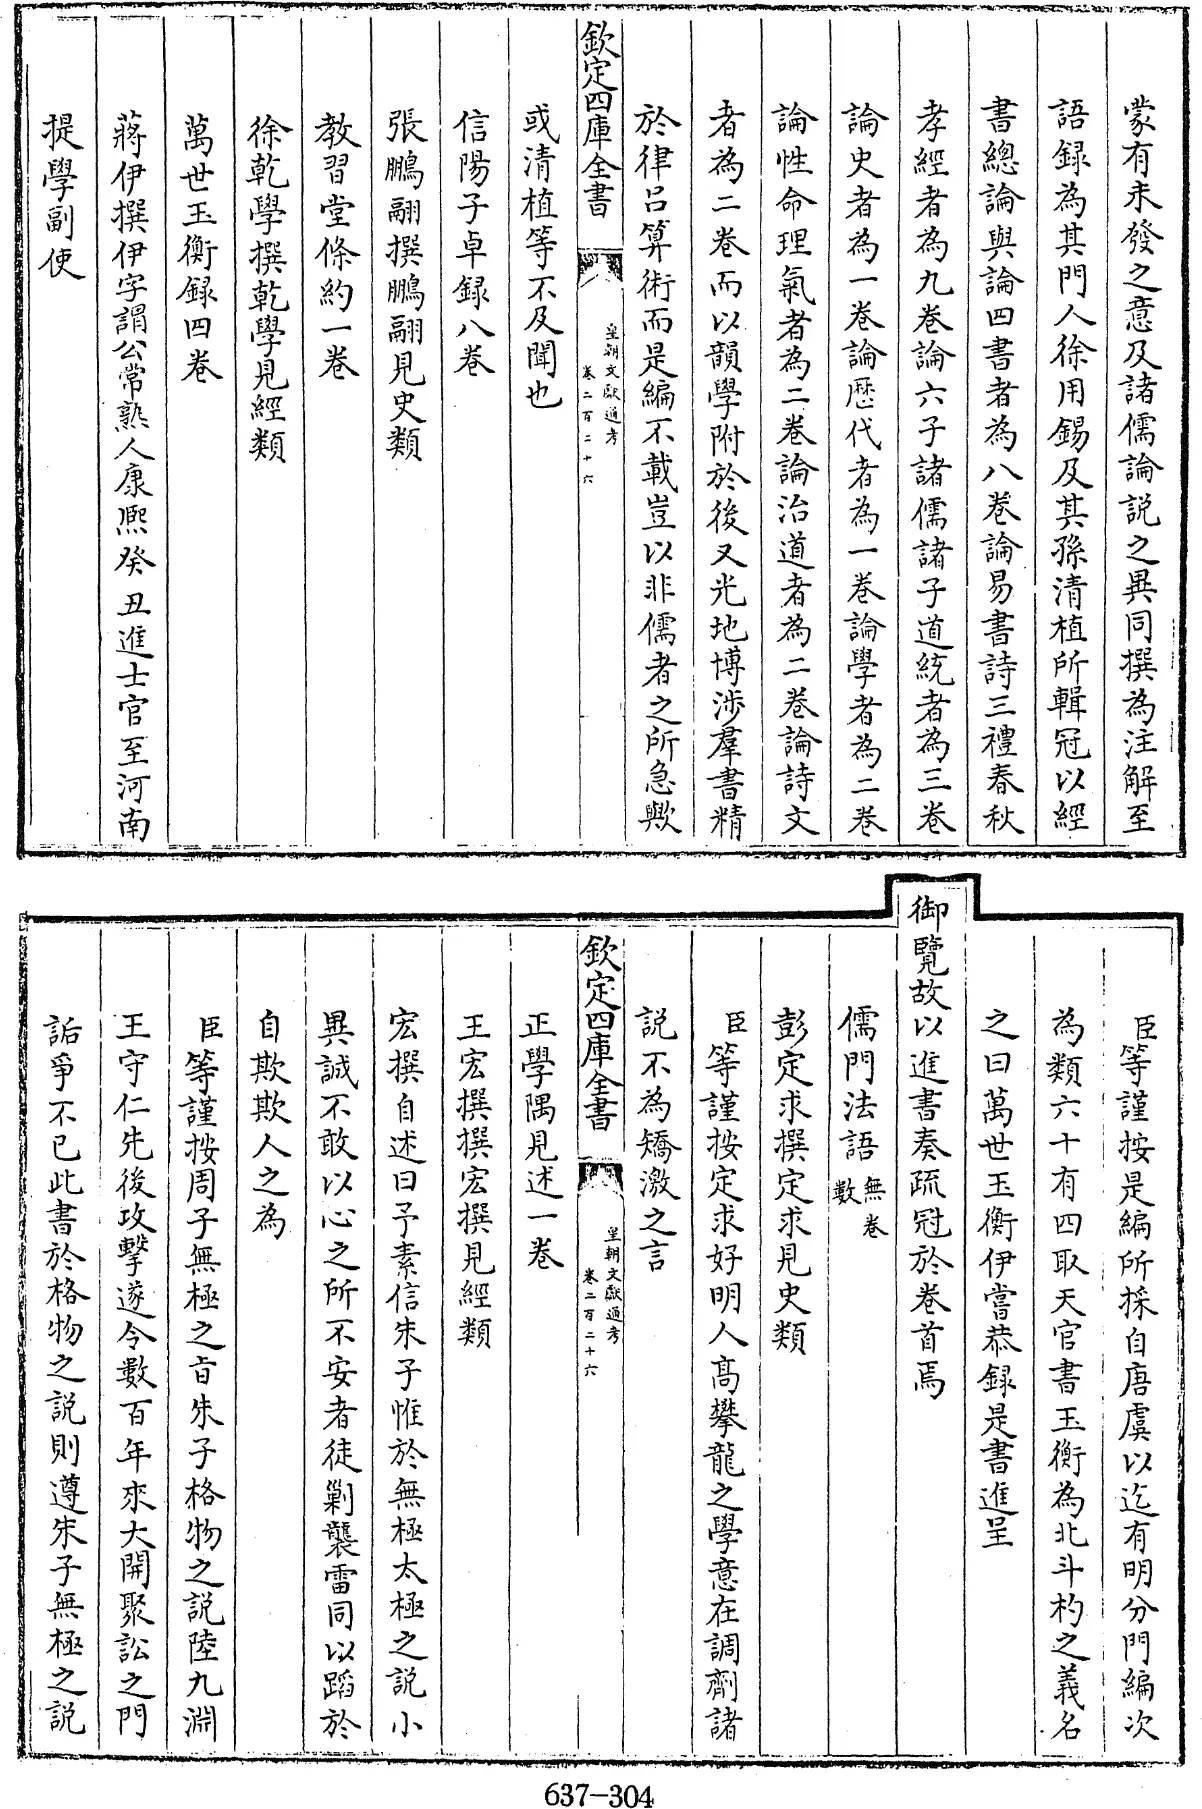 蒙有未發之意及諸儒論説之異同撰為注解至
語録為其門人徐用錫及其孫清植所輯冠以經
書總論與論四書者為八卷論易書詩三禮春秋
孝經者為九卷論六子諸儒諸子道統者為三卷
論史者為一卷論歴代者為一卷論學者為二卷
論性命理氣者為二卷論治道者為二卷論詩文
者為二卷而以韻學附於後又光地博涉羣書精
於律吕算術而是編不載豈以非儒者之所急歟
欽定四庫全書
皇朝文獻通考
卷二百二十六
或清植等不及聞也
信陽子卓録八卷
張鵬翮撰鵬翮見史類
教習堂條約一卷
徐乾學撰乾學見經類
萬世玉衡録四卷
蔣伊撰伊字謂公常熟人康熙癸丑進士官至河南
提學副使
臣等謹按是編所採自唐虞以迄有明分門編次
為類六十有四取天官書玉衡為北斗杓之義名
之曰萬世玉衡伊嘗恭録是書進呈
御覽故以進書奏疏冠於卷首焉
儒門法語無卷數
彭定求撰定求見史類
臣等謹按定求好明人髙攀龍之學意在調劑諸
説不為矯激之言
欽定四庫全書
皇朝文獻通考
卷二百二十六
正學隅見述一卷
王宏撰撰宏撰見經類
宏撰自述曰予素信朱子惟於無極太極之説小
異誠不敢以心之所不安者徒剿襲雷同以蹈於
自欺欺人之為
臣等謹按周子無極之㫖朱子格物之説陸九淵
王守仁先後攻擊遂令數百年來大開聚訟之門
詬爭不已此書於格物之説則遵朱子無極之説
637-304